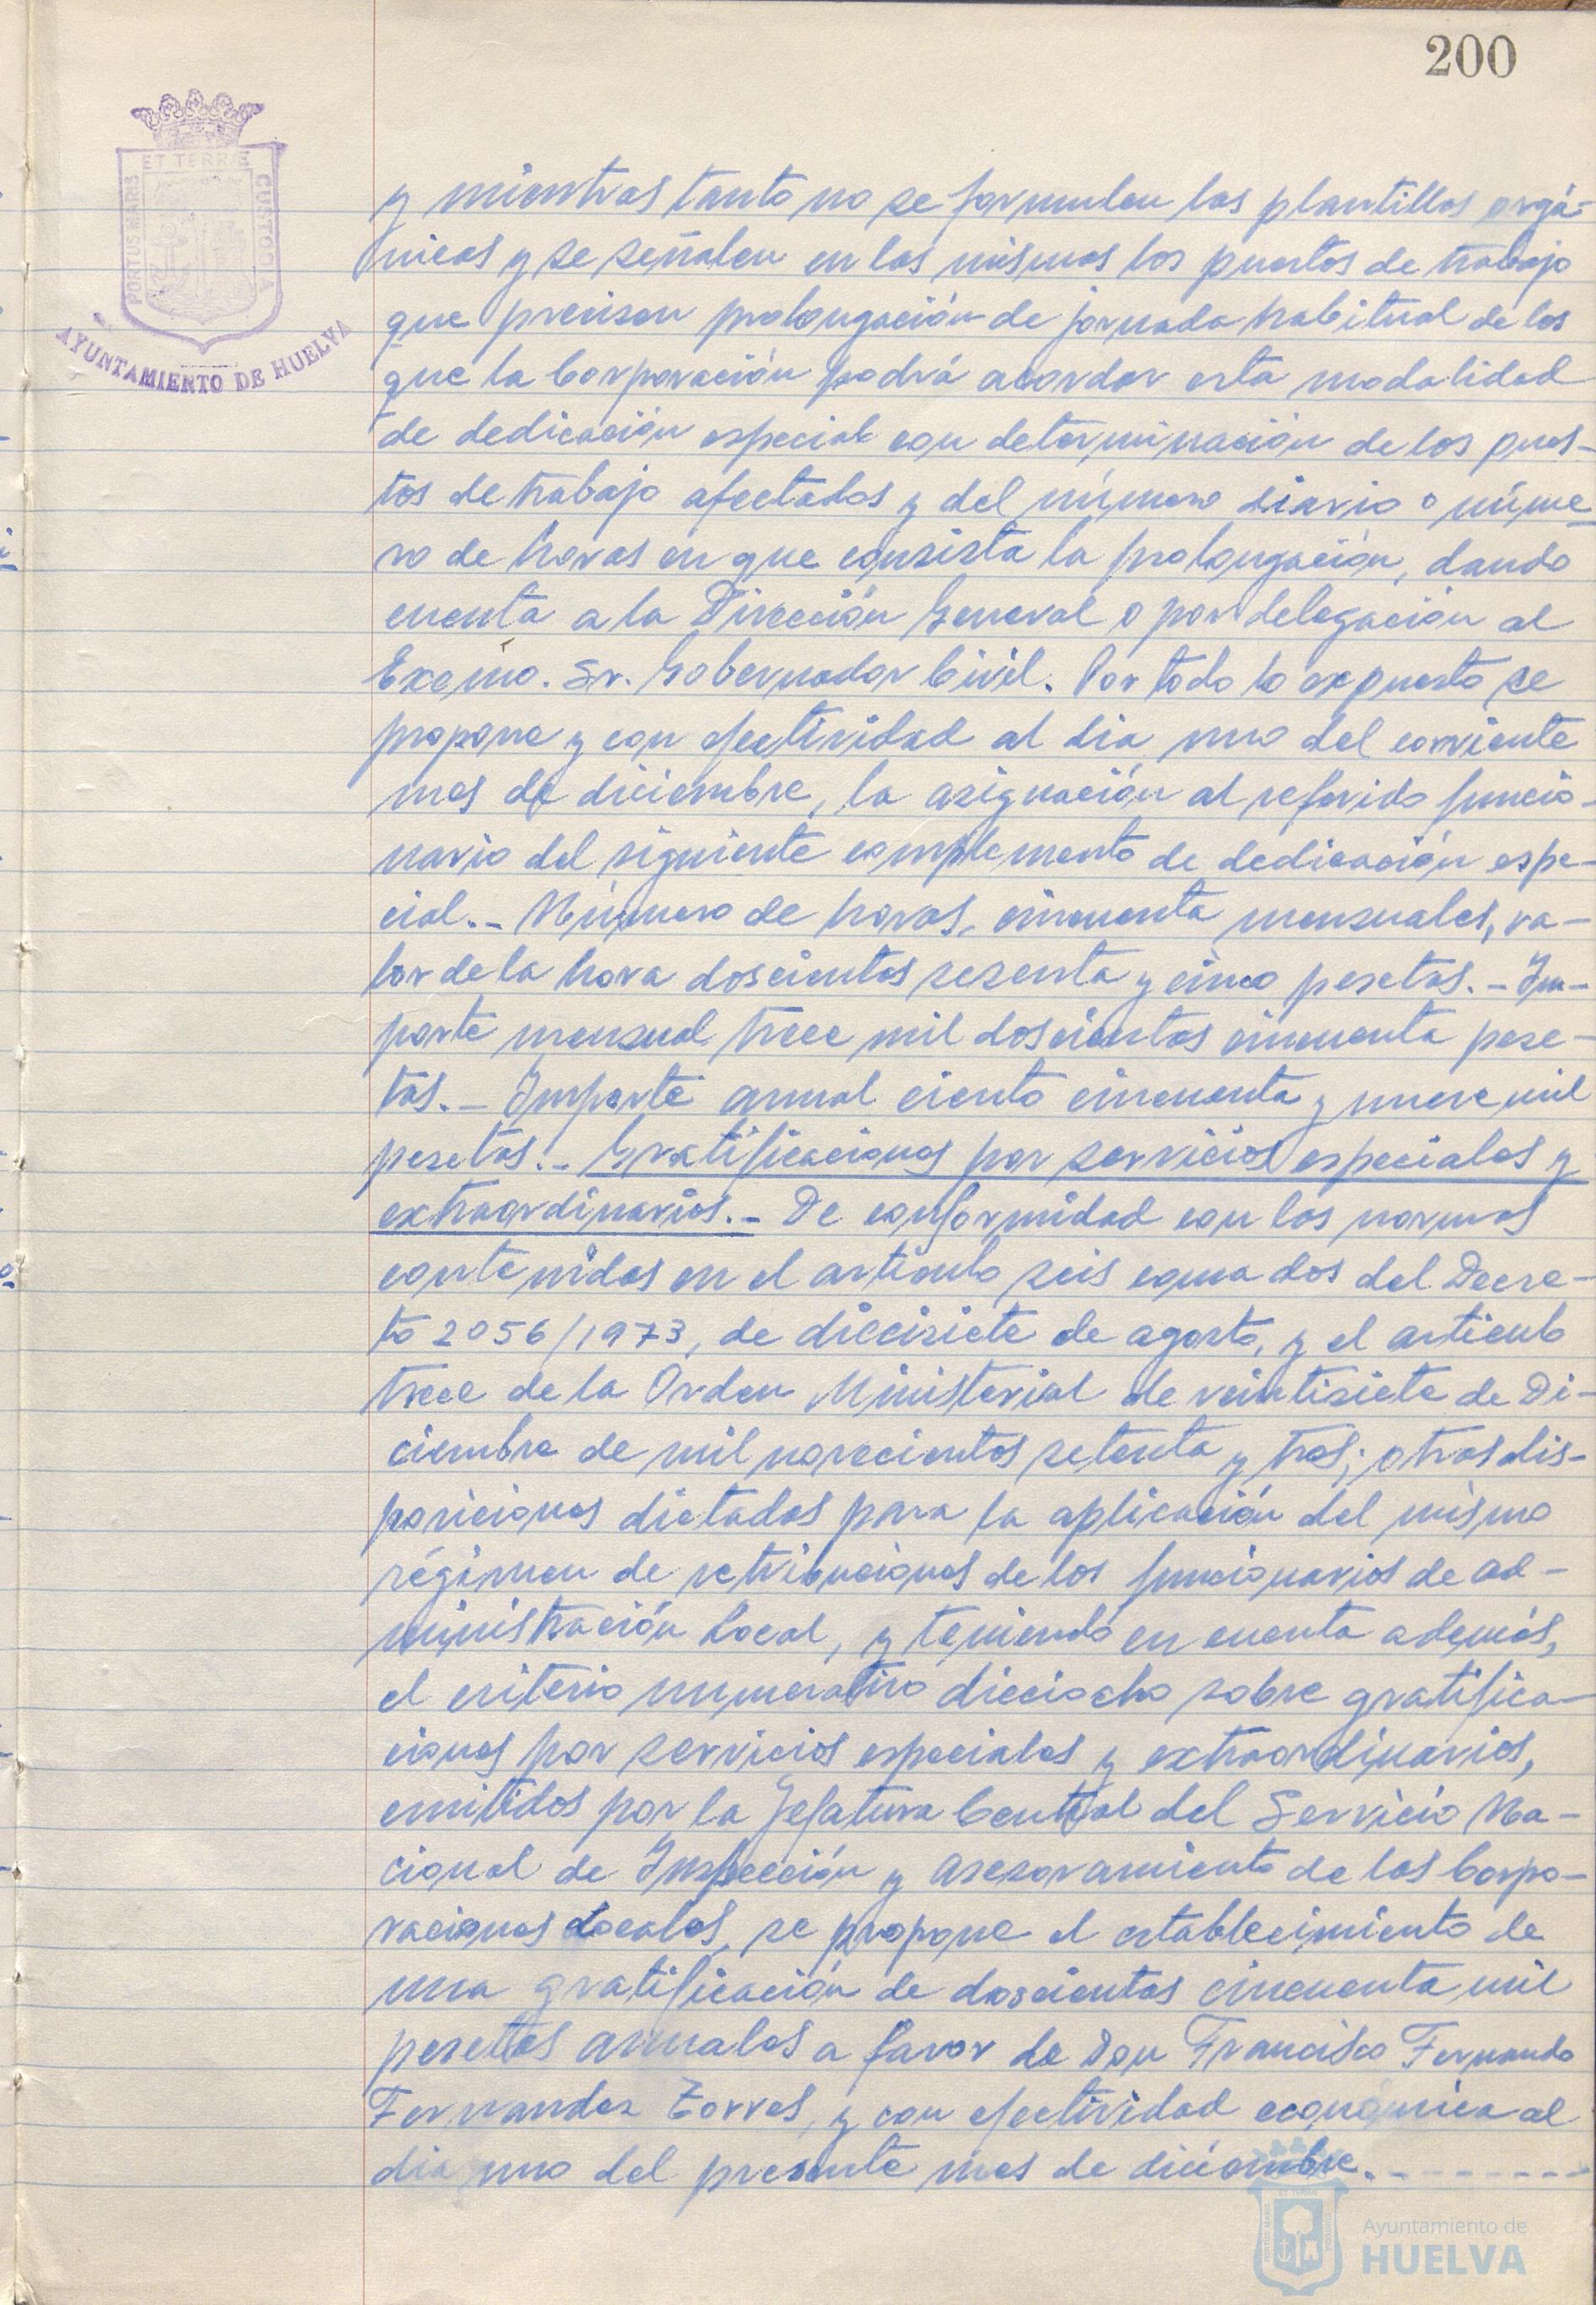 200
ET TERRÆ
PORTUS MARIS
CUSTODIA
AYUNTAMIENTO DE HUELVA
y mientras tanto no se formulen las plantillas orgá-
nicas y se señalen en las mismas los puestos de trabajo
que precisen prolongación de jornada habitual de los
que la Corporación podrá acordar esta modalidad
de dedicación especial con determinación de los pues-
tos de trabajo afectados y del número diario o núme-
ro de horas en que consista la prolongación, dando
cuenta a la Dirección General o por delegación al
Excmo. Sr. Gobernador Civil. Por todo lo expuesto se
propone y con efectividad al dia uno del corriente
mes de diciembre, la asignación al referido funcio-
nario del siguiente complemento de dedicación espe-
cial.- Número de horas, cincuenta mensuales, va-
lor de la hora doscientas sesenta y cinco pesetas.- Im-
porte mensual trece mil doscientas cincuenta pese-
tas.- Importe anual ciento cincuenta y nueve mil
pesetas.- Gratificaciones por servicios especiales y
extraordinarios.- De conformidad con las normas
contenidas en el artículo seis coma dos del Decre-
to 2056/1973, de diecisiete de agosto, y el articulo
trece de la Orden Ministerial de veintisiete de Di-
ciembre de mil novecientos setenta y tres; otras dis-
posiciones dictadas para la aplicación del mismo
régimen de retribuciones de los funcionarios de ad-
ministración Local, y teniendo en cuenta además,
el criterio numerativo dieciocho sobre gratifica-
ciones por servicios especiales y extraordinarios,
emitidos por la Jefatura Central del Servicio Na-
cional de Inspección y asesoramiento de las Corpo-
raciones Locales, se propone el establecimiento de
una gratificación de doscientas cincuenta mil
pesetas anuales a favor de Don Francisco Fernando
Fernandez Torres, y con efectividad económica al
dia uno del presente mes de diciembre.- - - - - - - -
Ayuntamiento de
HUELVA